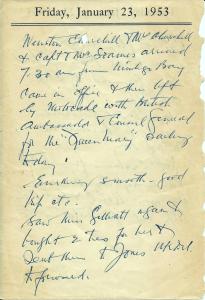 Friday, January 23, 1953
Winston Churchill & Mrs Churchill
& Capt & Mrs Soames arrived
7:30 am from Montego Bay
came in Office & then left
by Motorcade with British
Ambassador & Consul General
for the "Queen Mary" sailing
today.
smooth - good
trip etc.
Saw Miss again &
bought 2 for her &
sent them to Jones